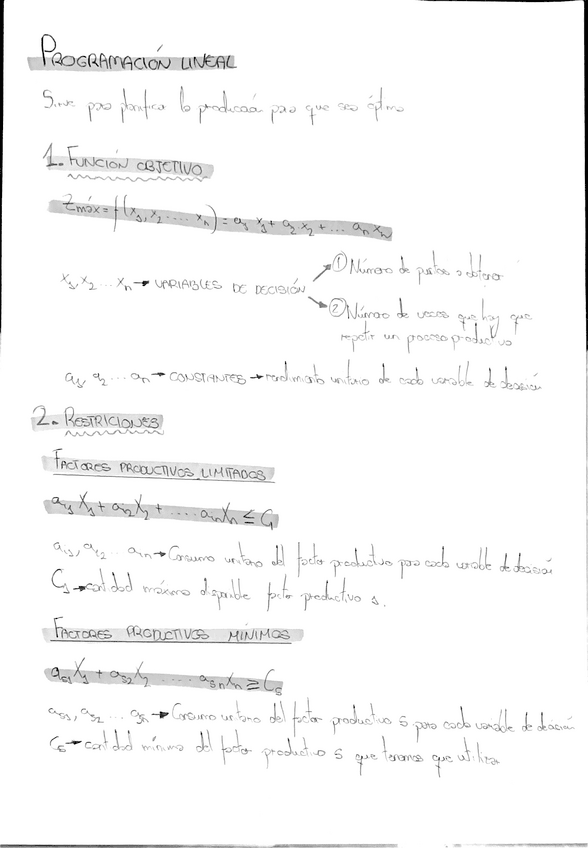 PROGRAMACIÓN LINEAL
Sirve para planificar la producción para que sea óptima
1. FUNCIÓN OBJETIVO
Zmáx = f(x₁, x₂ .... xₙ) = a₁ x₁ + a₂ x₂ + ... aₙ xₙ
① Número de  a obtener
x₁, x₂ ... xₙ → VARIABLES DE DECISIÓN
② Número de veces que hay que
repetir un proceso productivo
a₁, a₂ ... aₙ → CONSTANTES → rendimiento unitario de cada variable de decisión
2. RESTRICIONES
FACTORES PRODUCTIVOS LIMITADOS
a₁₁ X₁ + a₁₂ X₂ + ..... a₁ₙ Xₙ ≤ C₁
a₁₁, a₁₂ ... a₁ₙ → Consumo unitario del factor productivo para cada variable de decisión
C₁ → cantidad máxima disponible factor productivo 1.
FACTORES PRODUCTIVOS MÍNIMOS
aₛ₁ X₁ + aₛ₂ X₂ ..... aₛₙ Xₙ ≥ Cₛ
aₛ₁, aₛ₂ ... aₛₙ → Consumo unitario del factor productivo s para cada variable de decisión
Cₛ → cantidad mínima del factor productivo s que tenemos que utilizar